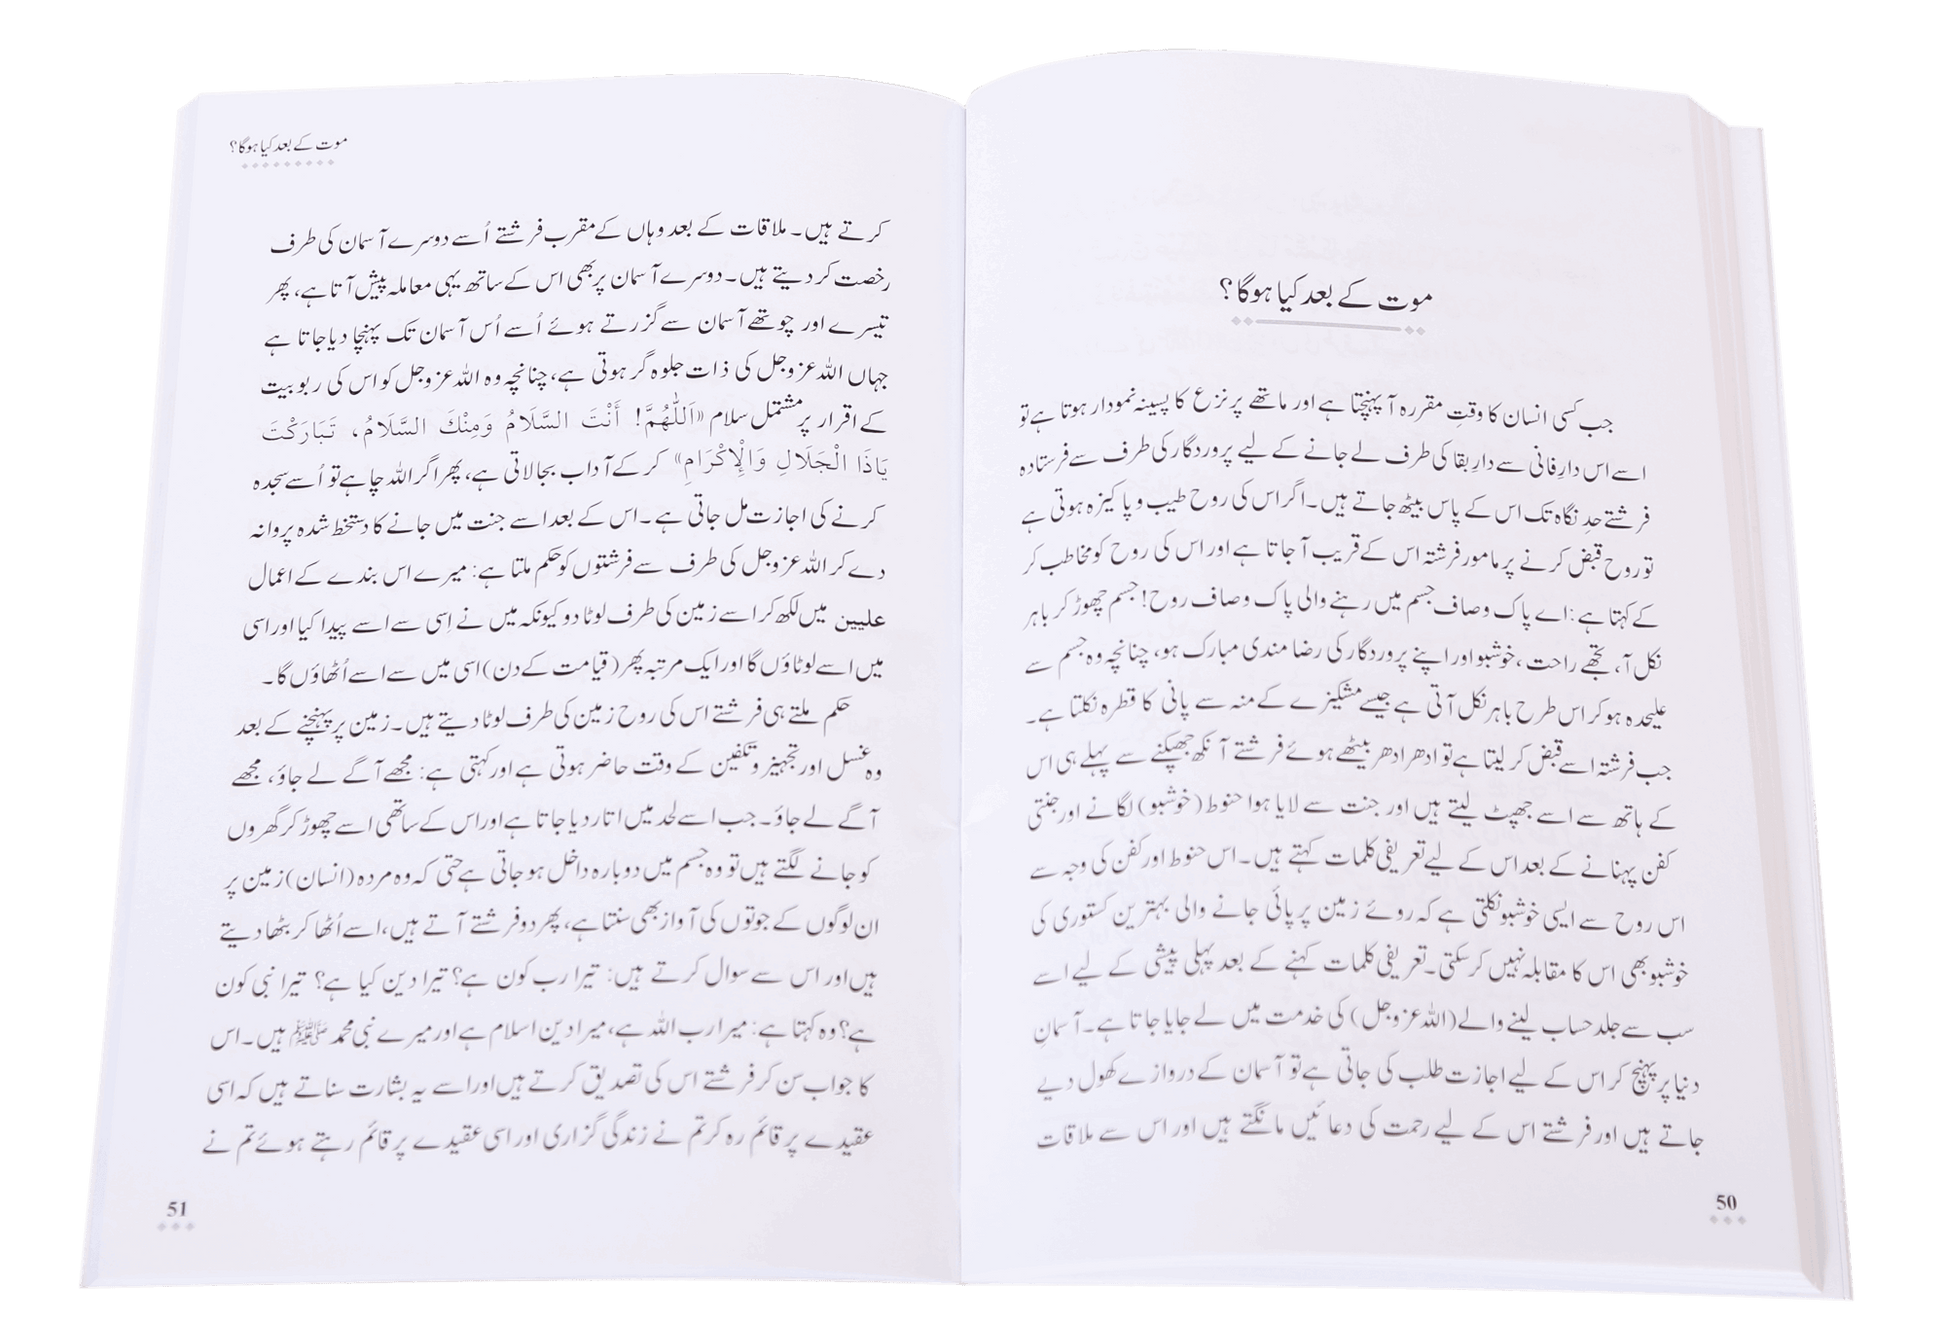 موت کے بعد کیا ہوگا؟
جب کسی انسان کا وقتِ مقررہ آپہنچتا ہے اور ماتھے پر نزع کا پسینہ نمودار ہوتا ہے تو
اسے اس دارِ فانی سے دارِ بقا کی طرف لے جانے کے لیے پروردگار کی طرف سے فرستادہ
فرشتے حدِ نگاہ تک اس کے پاس بیٹھ جاتے ہیں۔ اگر اس کی روح طیب و پاکیزہ ہوتی ہے
تو روح قبض کرنے پر مامور فرشتہ اس کے قریب آجاتا ہے اور اس کی روح کو مخاطب کر
کے کہتا ہے: اے پاک وصاف جسم میں رہنے والی پاک وصاف روح! جسم چھوڑ کر باہر
نکل آ، تجھے راحت، خوشبو اور اپنے پروردگار کی رضا مندی مبارک ہو، چنانچہ وہ جسم سے
علیحدہ ہوکر اس طرح باہر نکل آتی ہے جیسے مشکیزے کے منہ سے پانی کا قطرہ نکلتا ہے۔
جب فرشتہ اسے قبض کر لیتا ہے تو ادھر ادھر بیٹھے ہوئے فرشتے آنکھ جھپکنے سے پہلے ہی اس
کے ہاتھ سے اسے جھپٹ لیتے ہیں اور جنت سے لایا ہوا حنوط (خوشبو) لگانے اور جنتی
کفن پہنانے کے بعد اس کے لیے تعریفی کلمات کہتے ہیں۔ اس حنوط اور کفن کی وجہ سے
اس روح سے ایسی خوشبو نکلتی ہے کہ روئے زمین پر پائی جانے والی بہترین کستوری کی
خوشبو بھی اس کا مقابلہ نہیں کر سکتی۔ تعریفی کلمات کہنے کے بعد پہلی پیشی کے لیے اسے
سب سے جلد حساب لینے والے (اللہ عزوجل) کی خدمت میں لے جایا جاتا ہے۔ آسمانِ
دنیا پر پہنچ کر اس کے لیے اجازت طلب کی جاتی ہے تو آسمان کے دروازے کھول دیے
جاتے ہیں اور فرشتے اس کے لیے رحمت کی دعائیں مانگتے ہیں اور اس سے ملاقات
50
موت کے بعد کیا ہوگا؟
کرتے ہیں۔ ملاقات کے بعد وہاں کے مقرب فرشتے اُسے دوسرے آسمان کی طرف
رخصت کر دیتے ہیں۔ دوسرے آسمان پر بھی اس کے ساتھ یہی معاملہ پیش آتا ہے، پھر
تیسرے اور چوتھے آسمان سے گزرتے ہوئے اُسے اُس آسمان تک پہنچا دیا جاتا ہے
جہاں اللہ عزوجل کی ذات جلوہ گر ہوتی ہے، چنانچہ وہ اللہ عزوجل کو اس کی ربوبیت
کے اقرار پر مشتمل سلام «اَللّٰهُمَّ! أَنْتَ السَّلَامُ وَمِنْكَ السَّلَامُ، تَبَارَكْتَ
يَاذَا الْجَلَالِ وَالْإِكْرَامِ» کر کے آداب بجا لاتی ہے، پھر اگر اللہ چاہے تو اُسے سجدہ
کرنے کی اجازت مل جاتی ہے۔ اس کے بعد اسے جنت میں جانے کا دستخط شدہ پروانہ
دے کر اللہ عزوجل کی طرف سے فرشتوں کو حکم ملتا ہے: میرے اس بندے کے اعمال
علیین میں لکھ کر اسے زمین کی طرف لوٹا دو کیونکہ میں نے اِسی سے اسے پیدا کیا اور اسی
میں اسے لوٹاؤں گا اور ایک مرتبہ پھر (قیامت کے دن) اسی میں سے اسے اُٹھاؤں گا۔
حکم ملتے ہی فرشتے اس کی روح زمین کی طرف لوٹا دیتے ہیں۔ زمین پر پہنچنے کے بعد
وہ غسل اور تجہیز وتکفین کے وقت حاضر ہوتی ہے اور کہتی ہے: مجھے آگے لے جاؤ، مجھے
آگے لے جاؤ۔ جب اسے لحد میں اتار دیا جاتا ہے اور اس کے ساتھی اسے چھوڑ کر گھروں
کو جانے لگتے ہیں تو وہ جسم میں دوبارہ داخل ہو جاتی ہے حتی کہ وہ مردہ (انسان) زمین پر
ان لوگوں کے جوتوں کی آواز بھی سنتا ہے، پھر دو فرشتے آتے ہیں، اسے اُٹھا کر بٹھا دیتے
ہیں اور اس سے سوال کرتے ہیں: تیرا رب کون ہے؟ تیرا دین کیا ہے؟ تیرا نبی کون
ہے؟ وہ کہتا ہے: میرا رب اللہ ہے، میرا دین اسلام ہے اور میرے نبی محمد ﷺ ہیں۔ اس
کا جواب سن کر فرشتے اس کی تصدیق کرتے ہیں اور اسے یہ بشارت سناتے ہیں کہ اسی
عقیدے پر قائم رہ کر تم نے زندگی گزاری اور اسی عقیدے پر قائم رہتے ہوئے تم نے
51